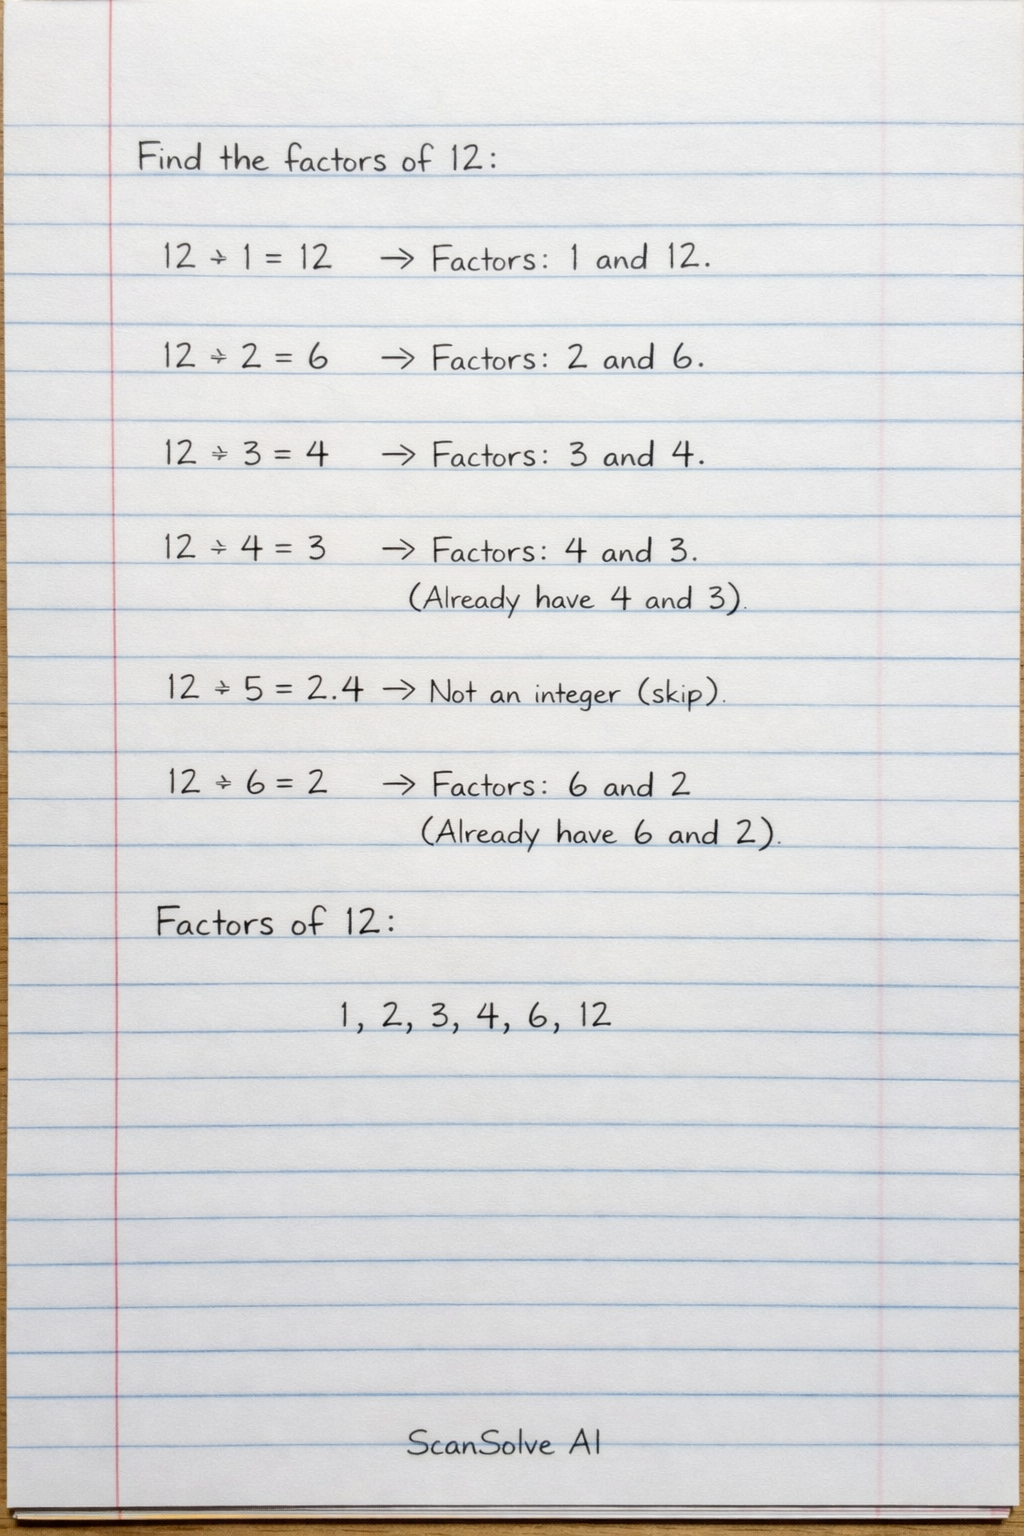 Find the factors of 12:
12 ÷ 1 = 12 → Factors: 1 and 12.
12 ÷ 2 = 6 → Factors: 2 and 6.
12 ÷ 3 = 4 → Factors: 3 and 4.
12 ÷ 4 = 3 → Factors: 4 and 3.
(Already have 4 and 3).
12 ÷ 5 = 2.4 → Not an integer (skip).
12 ÷ 6 = 2 → Factors: 6 and 2
(Already have 6 and 2).
Factors of 12:
1, 2, 3, 4, 6, 12
ScanSolve AI